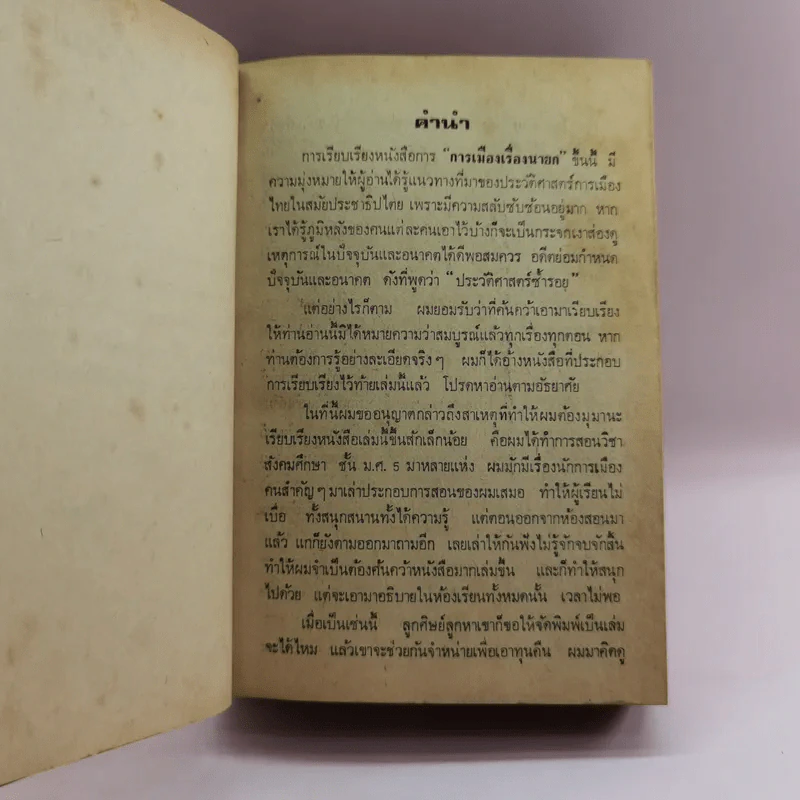 คำนำ
การเรียบเรียงหนังสือการ "การเมืองเรื่องนายก" ขึ้นนี้ มี
ความมุ่งหมายให้ผู้อ่านได้รู้แนวทางที่มาของประวัติศาสตร์การเมือง
ไทยในสมัยประชาธิปไตย เพราะมีความสลับซับซ้อนอยู่มาก หาก
เราได้รู้ภูมิหลังของคนแต่ละคนเอาไว้บ้างก็จะเป็นกระจกเงาส่องดู
เหตุการณ์ในปัจจุบันและอนาคตได้ดีพอสมควร อดีตย่อมกำหนด
ปัจจุบันและอนาคต ดังที่พูดว่า "ประวัติศาสตร์ซ้ำรอย"
แต่อย่างไรก็ตาม ผมยอมรับว่าที่ค้นคว้าเอามาเรียบเรียง
ให้ท่านอ่านนี้มิได้หมายความว่าสมบูรณ์แล้วทุกเรื่องทุกตอน หาก
ท่านต้องการรู้อย่างละเอียดจริงๆ ผมก็ได้อ้างหนังสือที่ประกอบ
การเรียบเรียงไว้ท้ายเล่มนี้แล้ว โปรดหาอ่านตามอัธยาศัย
ในที่นี้ผมขออนุญาตกล่าวถึงสาเหตุที่ทำให้ผมต้องมุมานะ
เรียบเรียงหนังสือเล่มนี้ขึ้นสักเล็กน้อย คือผมได้ทำการสอนวิชา
สังคมศึกษา ชั้น ม.ศ. 5 มาหลายแห่ง ผมมักมีเรื่องนักการเมือง
คนสำคัญๆ มาเล่าประกอบการสอนของผมเสมอ ทำให้ผู้เรียนไม่
เบื่อ ทั้งสนุกสนานทั้งได้ความรู้ แต่ตอนออกจากห้องสอนมา
แล้ว แกก็ยังตามออกมาถามอีก เลยเล่าให้กันฟังไม่รู้จักจบจักสิ้น
ทำให้ผมจำเป็นต้องค้นคว้าหนังสือมากเล่มขึ้น และก็ทำให้สนุก
ไปด้วย แต่จะเอามาอธิบายในห้องเรียนทั้งหมดนั้น เวลาไม่พอ
เมื่อเป็นเช่นนี้ ลูกศิษย์ลูกหาเขาก็ขอให้จัดพิมพ์เป็นเล่ม
จะได้ไหม แล้วเขาจะช่วยกันจำหน่ายเพื่อเอาทุนคืน ผมมาคิดดู